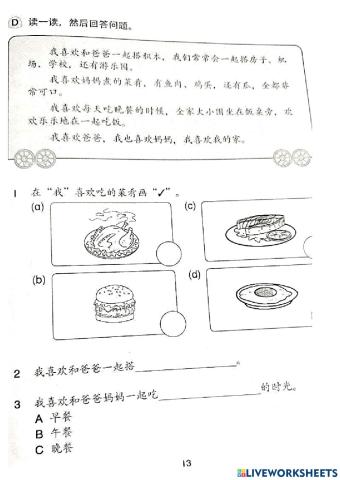 D 读一读，然后回答问题。
我喜欢和爸爸一起搭积木，我们常常会一起搭房子、机
场、学校，还有游乐园。
我喜欢妈妈煮的菜肴，有鱼肉、鸡蛋，还有瓜，全都非
常可口。
我喜欢每天吃晚餐的时候，全家大小围坐在饭桌旁，欢
欢乐乐地在一起吃饭。
我喜欢爸爸，我也喜欢妈妈，我喜欢我的家。
1 在“我”喜欢吃的菜肴画“✓”。
(a)
(c)
(b)
(d)
2 我喜欢和爸爸一起搭____________。
3 我喜欢和爸爸妈妈一起吃____________的时光。
A 早餐
B 午餐
C 晚餐
13
LIVEWORKSHEETS